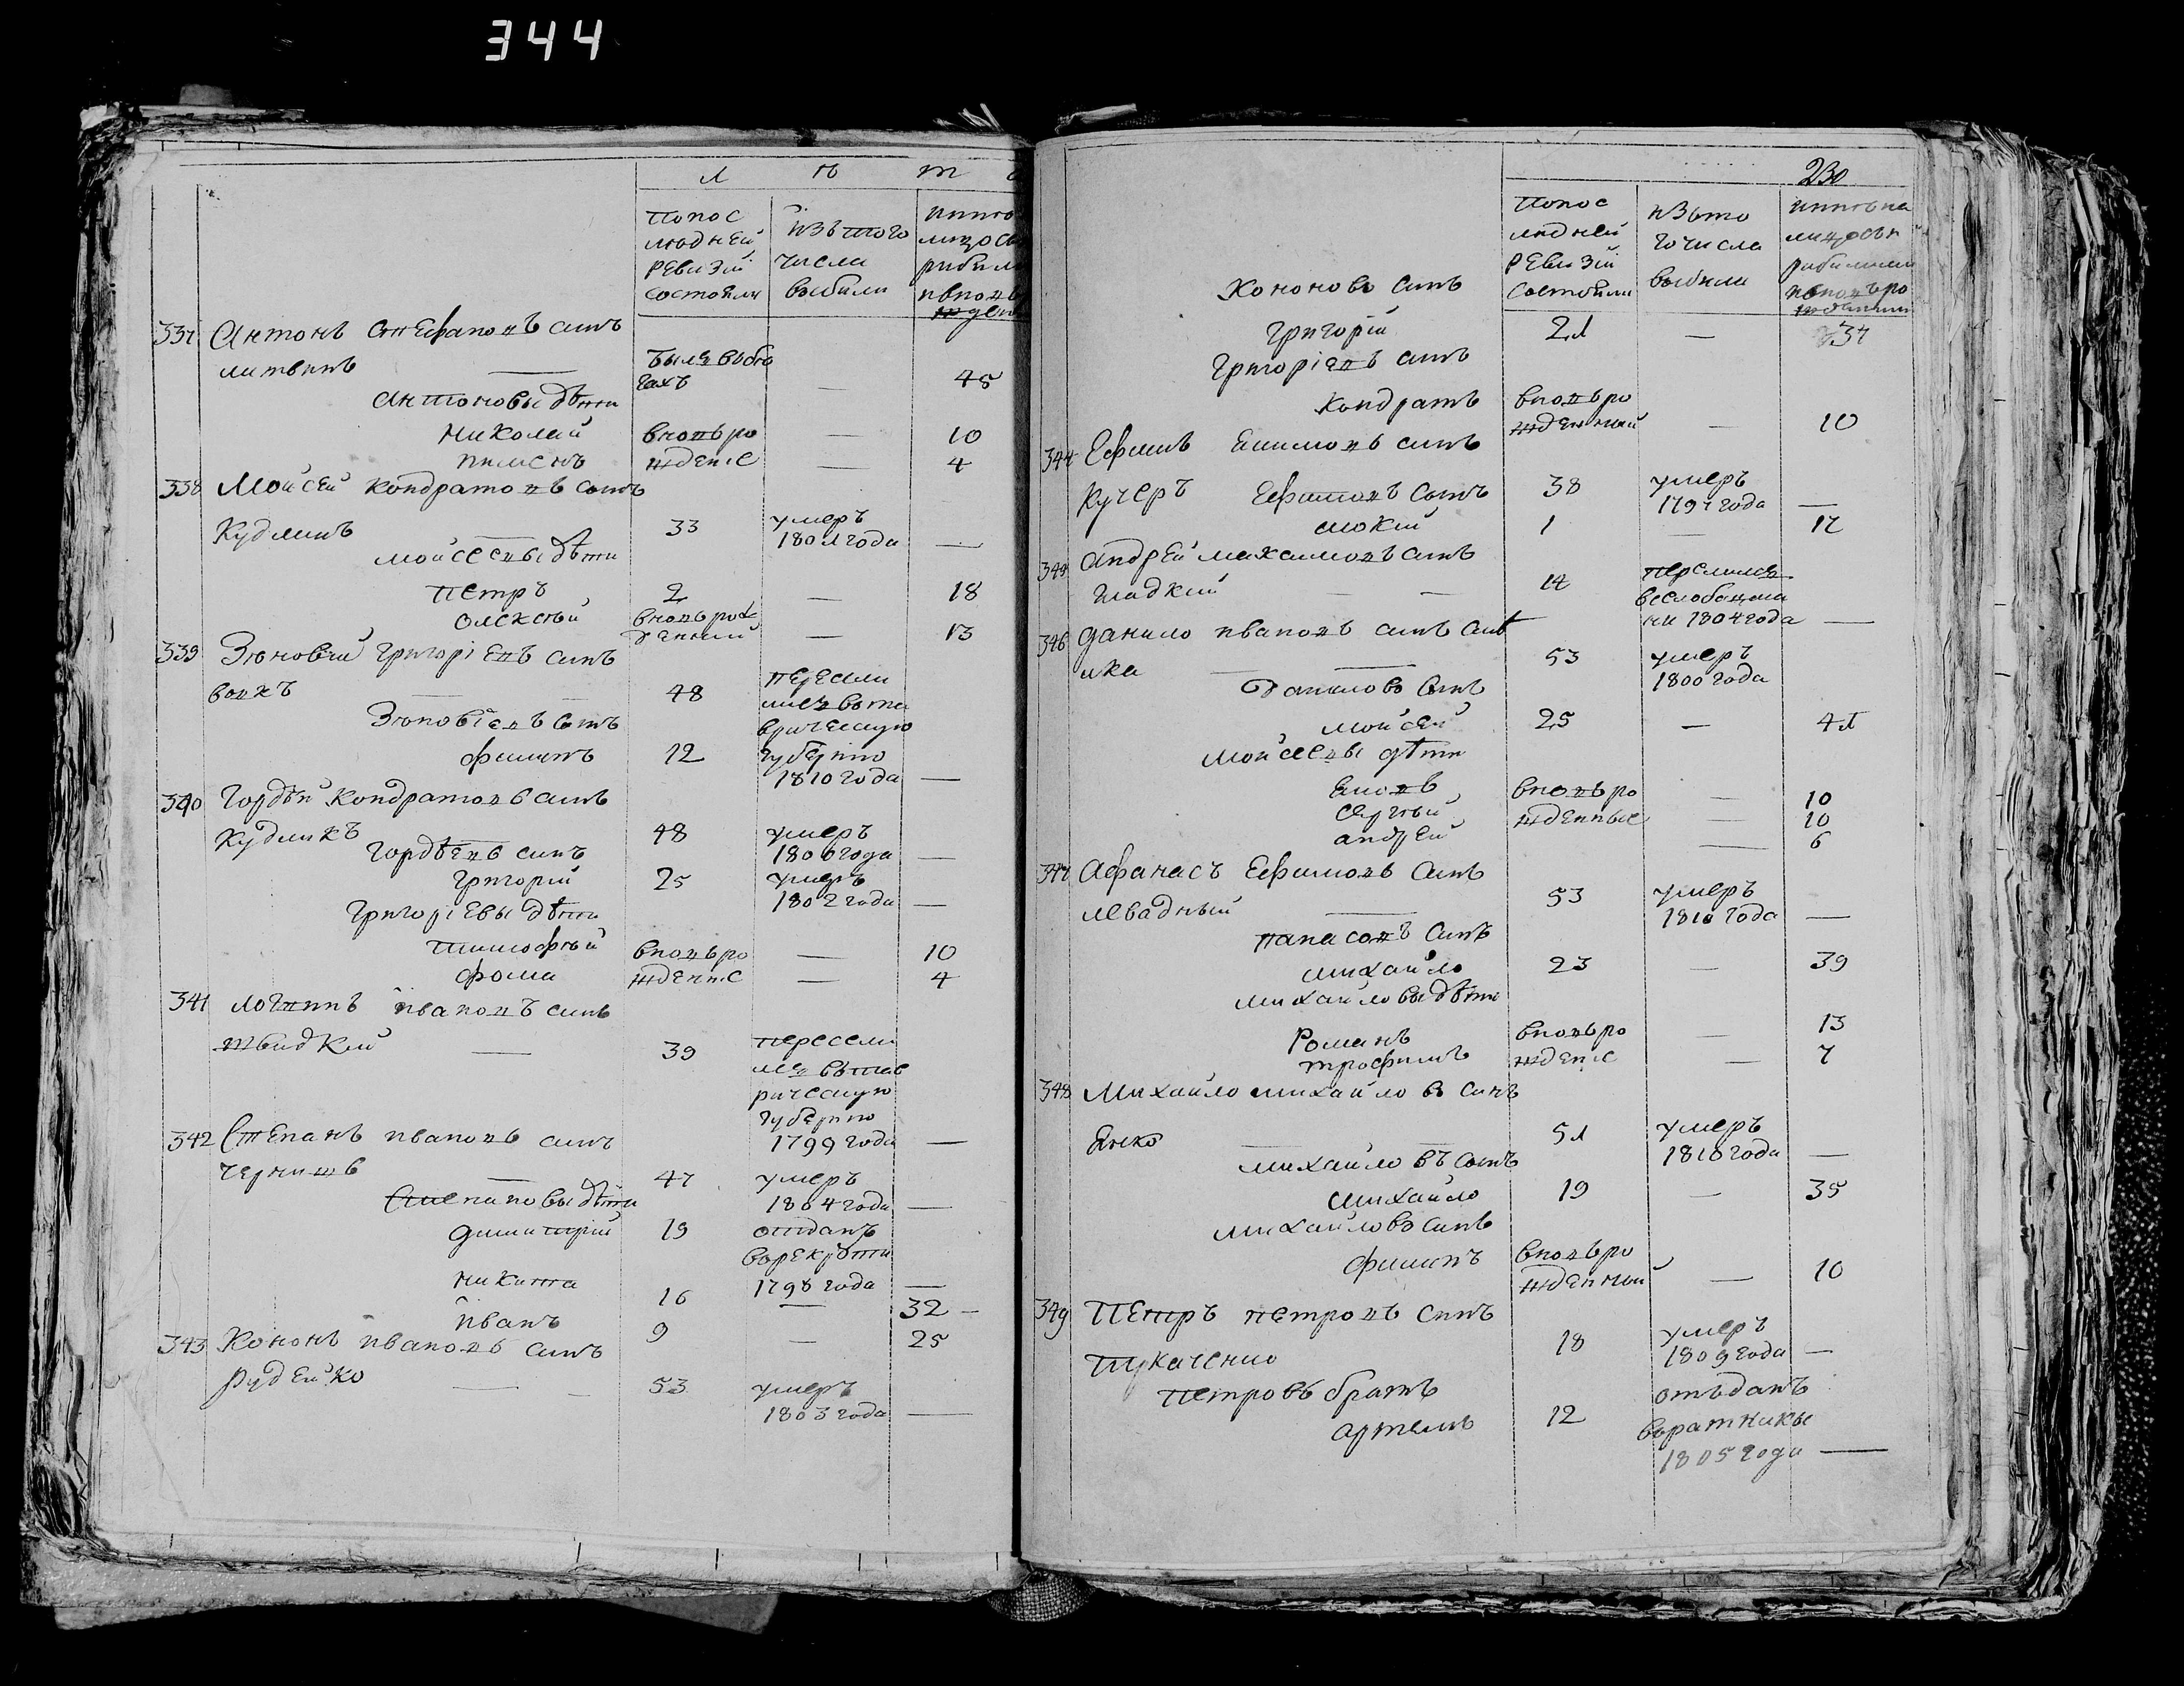 344
Л ѣ т ъ
Попос
людней
ревизій
состояли
изъ того
числа
выбыли
337 Антонъ Стефановъ сынъ
литвинъ — былъ вбѣ
гахъ — 45
Антоновы дѣти
Николай вновь ро — 10
Пименъ жденіе — 4
338 Мойсей Кондратовъ сынъ
Кудлинъ — 33 умеръ
1801 года —
Мойсеевы дѣти
Петръ 2 — 18
Олексѣй вновь рож
денный — 13
339 Зѣновій Григоріевъ сынъ
вовкъ — 48 пересели
лись вта
врическую
Зѣновіевъ сынъ
филипъ 12 губернію
1810 года —
340 Гордѣй Кондратовъ сынъ
Кудликъ 48 умеръ
1806 года —
Гордѣевъ сынъ
Григорій 25 умеръ
1802 года —
Григоріевы дѣти
Тимофѣй вновь ро — 10
Фома жденіе — 4
341 Логвинъ Ивановъ сынъ
Швидкій — 39 пересели
лся вътав
рическую
губернію
1799 года —
342 Степанъ Ивановъ сынъ
Чернишъ — 47 умеръ
1804 года —
Степановы дѣти
Димитрій 19 отданъ
врекруты
1798 года —
Никита 16 — 32 —
Иванъ 9 — 25
343 Кононъ Ивановъ сынъ
Рудейко — 53 умеръ
1803 года —
230
Попос
лидней
ревизій
состояли
изъто
гочисла
выбили
Кононовъ сынъ
Григорій 21 — 37
Григоріевъ сынъ
Кондратъ вновь ро
жденный — 10
344 Ефимъ Екимовъ сынъ
Кучеръ 38 умеръ
1797 года —
Ефимовъ сынъ
Мокій 1 — 17
345 Андрей Максимовъ сынъ
Гладкій — — 14 переслился
вслободзеи
ни 1804 года —
346 Данило Ивановъ сынъ Слѣ
пка — 53 умеръ
1800 года
Даниловъ сынъ
Мойсей 25 — 41
Мойсеевы дѣти
Яковъ вновь ро — 10
Сергѣй жденные — 10
Андрей — 6
347 Афанасъ Ефимовъ сынъ
Левадный — 53 умеръ
1810 года —
Панасовъ сынъ
Михайло 23 — 39
Михайловы дѣти
Романъ вновь ро — 13
Трофимъ жденіе — 7
348 Михайло Михайловъ сынъ
Янко — 51 умеръ
1810 года —
Михайловъ сынъ
Михайло 19 — 35
Михайловъ сынъ
Филипъ вновь ро
жденный — 10
349 Петръ Петровъ сынъ
Тукаченко 18 умеръ
1809 года —
Петровъ братъ
Артемъ 12 отъданъ
вратники
1805 года —